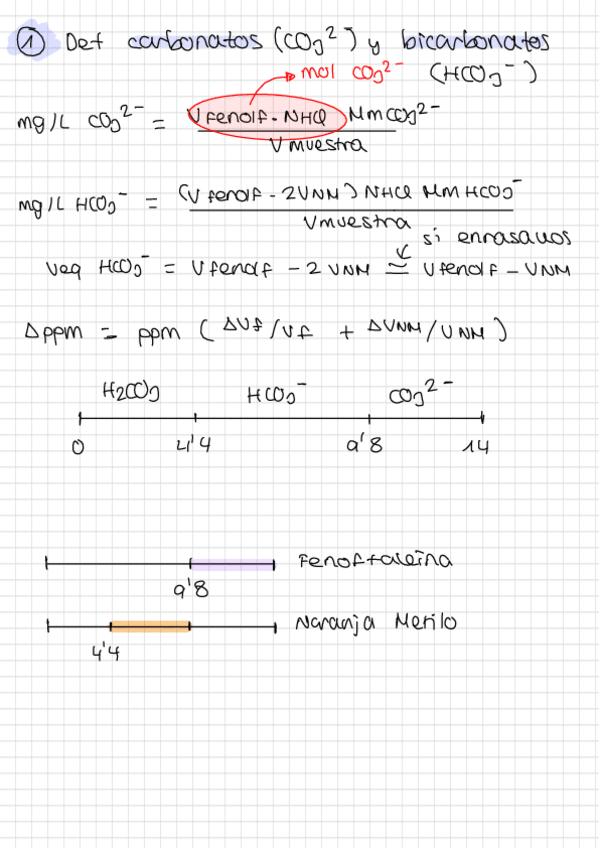 ① Det carbonatos (CO3²⁻) y bicarbonatos
mol CO3²⁻ (HCO3⁻)
mg/L CO3²⁻ = Vfenolf · NHCl MmCO3²⁻
Vmuestra
mg/L HCO3⁻ = (Vfenolf - 2VNM) NHCl MmHCO3⁻
Vmuestra
si enrasamos
Veq HCO3⁻ = Vfenolf - 2VNM ≃ Vfenolf - VNM
Δppm = ppm (ΔVf/Vf + ΔVNM/VNM)
H2CO3 HCO3⁻ CO3²⁻
0 4'4 9'8 14
Fenoftaleína
9'8
Naranja Metilo
4'4